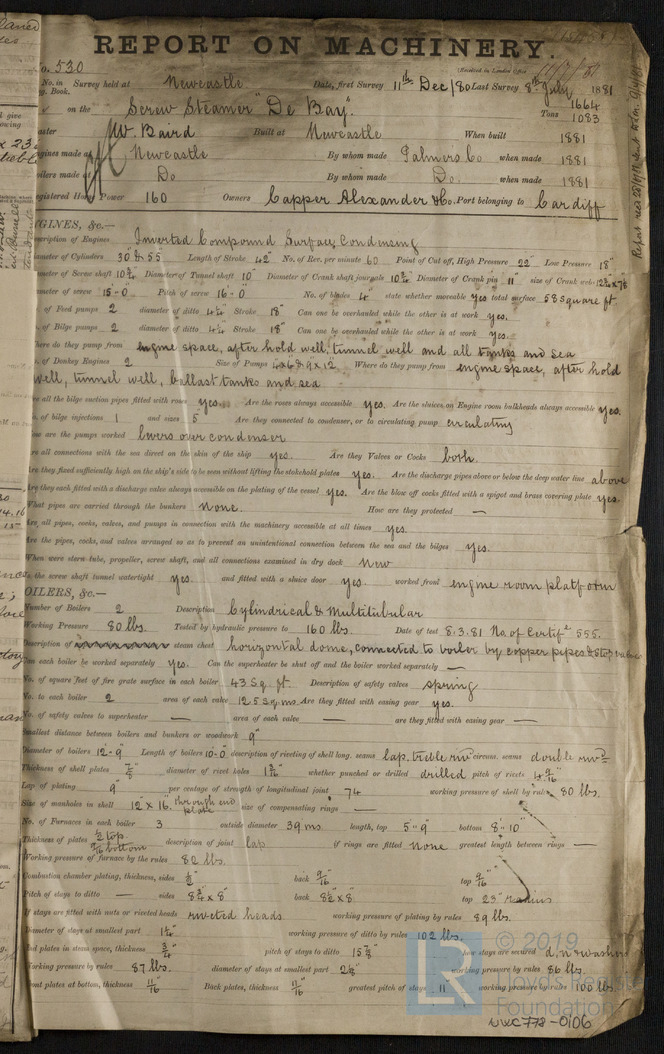 REPORT ON MACHINERY.
No. 530 (Received in London Office 11/7/81
No. in Survey held at Newcastle Date, first Survey 11th Dec/80 Last Survey 8th July 1881
Book.
on the Screw Steamer "De Bay". Tons 1664 1083
W Baird Built at Newcastle When built 1881
Engines made at Newcastle By whom made Palmers Co when made 1881
Boilers made at Do By whom made Do. when made 1881
Registered Horse Power 160 Owners Capper Alexander & Co. Port belonging to Cardiff
ENGINES, &c.—
Description of Engines Inverted Compound Surface Condensing
Diameter of Cylinders 30" & 55 Length of Stroke 42" No. of Rev. per minute 60 Point of Cut off, High Pressure 22" Low Pressure 18"
Diameter of Screw shaft 10¾ Diameter of Tunnel shaft 10" Diameter of Crank shaft journals 10¾ Diameter of Crank pin 11" size of Crank web
Diameter of screw 15-0" Pitch of screw 16-0" No. of blades 4" state whether moveable yes total surface 58 square ft
No. of Feed pumps 2 diameter of ditto 4¼" Stroke 18" Can one be overhauled while the other is at work yes.
No. of Bilge pumps 2 diameter of ditto 4¼" Stroke 18" Can one be overhauled while the other is at work yes.
Where do they pump from engine space, after hold well, tunnel well and all tanks and sea
No. of Donkey Engines 2 Size of Pumps 4x6 & 9x12 Where do they pump from engine space, after hold
well, tunnel well, ballast tanks and sea
Are all the bilge suction pipes fitted with roses yes. Are the roses always accessible yes. Are the sluices on Engine room bulkheads always accessible yes.
No. of bilge injections 1 and sizes 5 Are they connected to condenser, or to circulating pump circulating
How are the pumps worked levers over condenser
Are all connections with the sea direct on the skin of the ship yes. Are they Valves or Cocks both.
Are they fixed sufficiently high on the ship's side to be seen without lifting the stokehold plates yes. Are the discharge pipes above or below the deep water line above
Are they each fitted with a discharge valve always accessible on the plating of the vessel yes. Are the blow off cocks fitted with a spigot and brass covering plate yes.
What pipes are carried through the bunkers none. How are they protected —
Are all pipes, cocks, valves, and pumps in connection with the machinery accessible at all times yes.
Are the pipes, cocks, and valves arranged so as to prevent an unintentional connection between the sea and the bilges yes.
When were stern tube, propeller, screw shaft, and all connections examined in dry dock new
Is the screw shaft tunnel watertight yes. and fitted with a sluice door yes. worked from engine room platform
BOILERS, &c.—
Number of Boilers 2 Description Cylindrical & Multitubular
Working Pressure 80 lbs. Tested by hydraulic pressure to 160 lbs. Date of test 8.3.81 No. of Certif. 555.
Description of steam chest horizontal dome, connected to boiler by copper pipes & stop valves
Can each boiler be worked separately yes. Can the superheater be shut off and the boiler worked separately —
No. of square feet of fire grate surface in each boiler 43 Sq. ft. Description of safety valves spring
No. to each boiler 2 area of each valve 12.5 sq. ins. Are they fitted with easing gear yes.
No. of safety valves to superheater — area of each valve — are they fitted with easing gear —
Smallest distance between boilers and bunkers or woodwork 9"
Diameter of boilers 12'-9" Length of boilers 10-0" description of riveting of shell long. seams lap, treble riv circum. seams double riv
Thickness of shell plates ⅞" diameter of rivet holes whether punched or drilled drilled pitch of rivets 4 9/16"
Lap of plating 9" per centage of strength of longitudinal joint 74 working pressure of shell by rules 80 lbs.
Size of manholes in shell 12" x 16". through end plate size of compensating rings —
No. of Furnaces in each boiler 3 outside diameter 39 ins. length, top 5'-9" bottom 8'-10"
Thickness of plates ½ top 9/16 bottom description of joint lap if rings are fitted none greatest length between rings —
Working pressure of furnace by the rules 82 lbs.
Combustion chamber plating, thickness, sides ½" back 9/16" top 9/16"
Pitch of stays to ditto — sides 8¾ x 8" back 8½ x 8" top 23" radius
If stays are fitted with nuts or riveted heads riveted heads. working pressure of plating by rules 89 lbs.
Diameter of stays at smallest part 1¼" working pressure of ditto by rules 102 lbs.
End plates in steam space, thickness ¾" pitch of stays to ditto 15⅞" how stays are secured d. n & washers
Working pressure by rules 87 lbs. diameter of stays at smallest part working pressure by rules 86 lbs.
Front plates at bottom, thickness 11/16" Back plates, thickness 11/16" greatest pitch of stays 11" working pressure by rules 100 lbs
© 2019
Lloyd's Register
Foundation
LR
WC778-0106